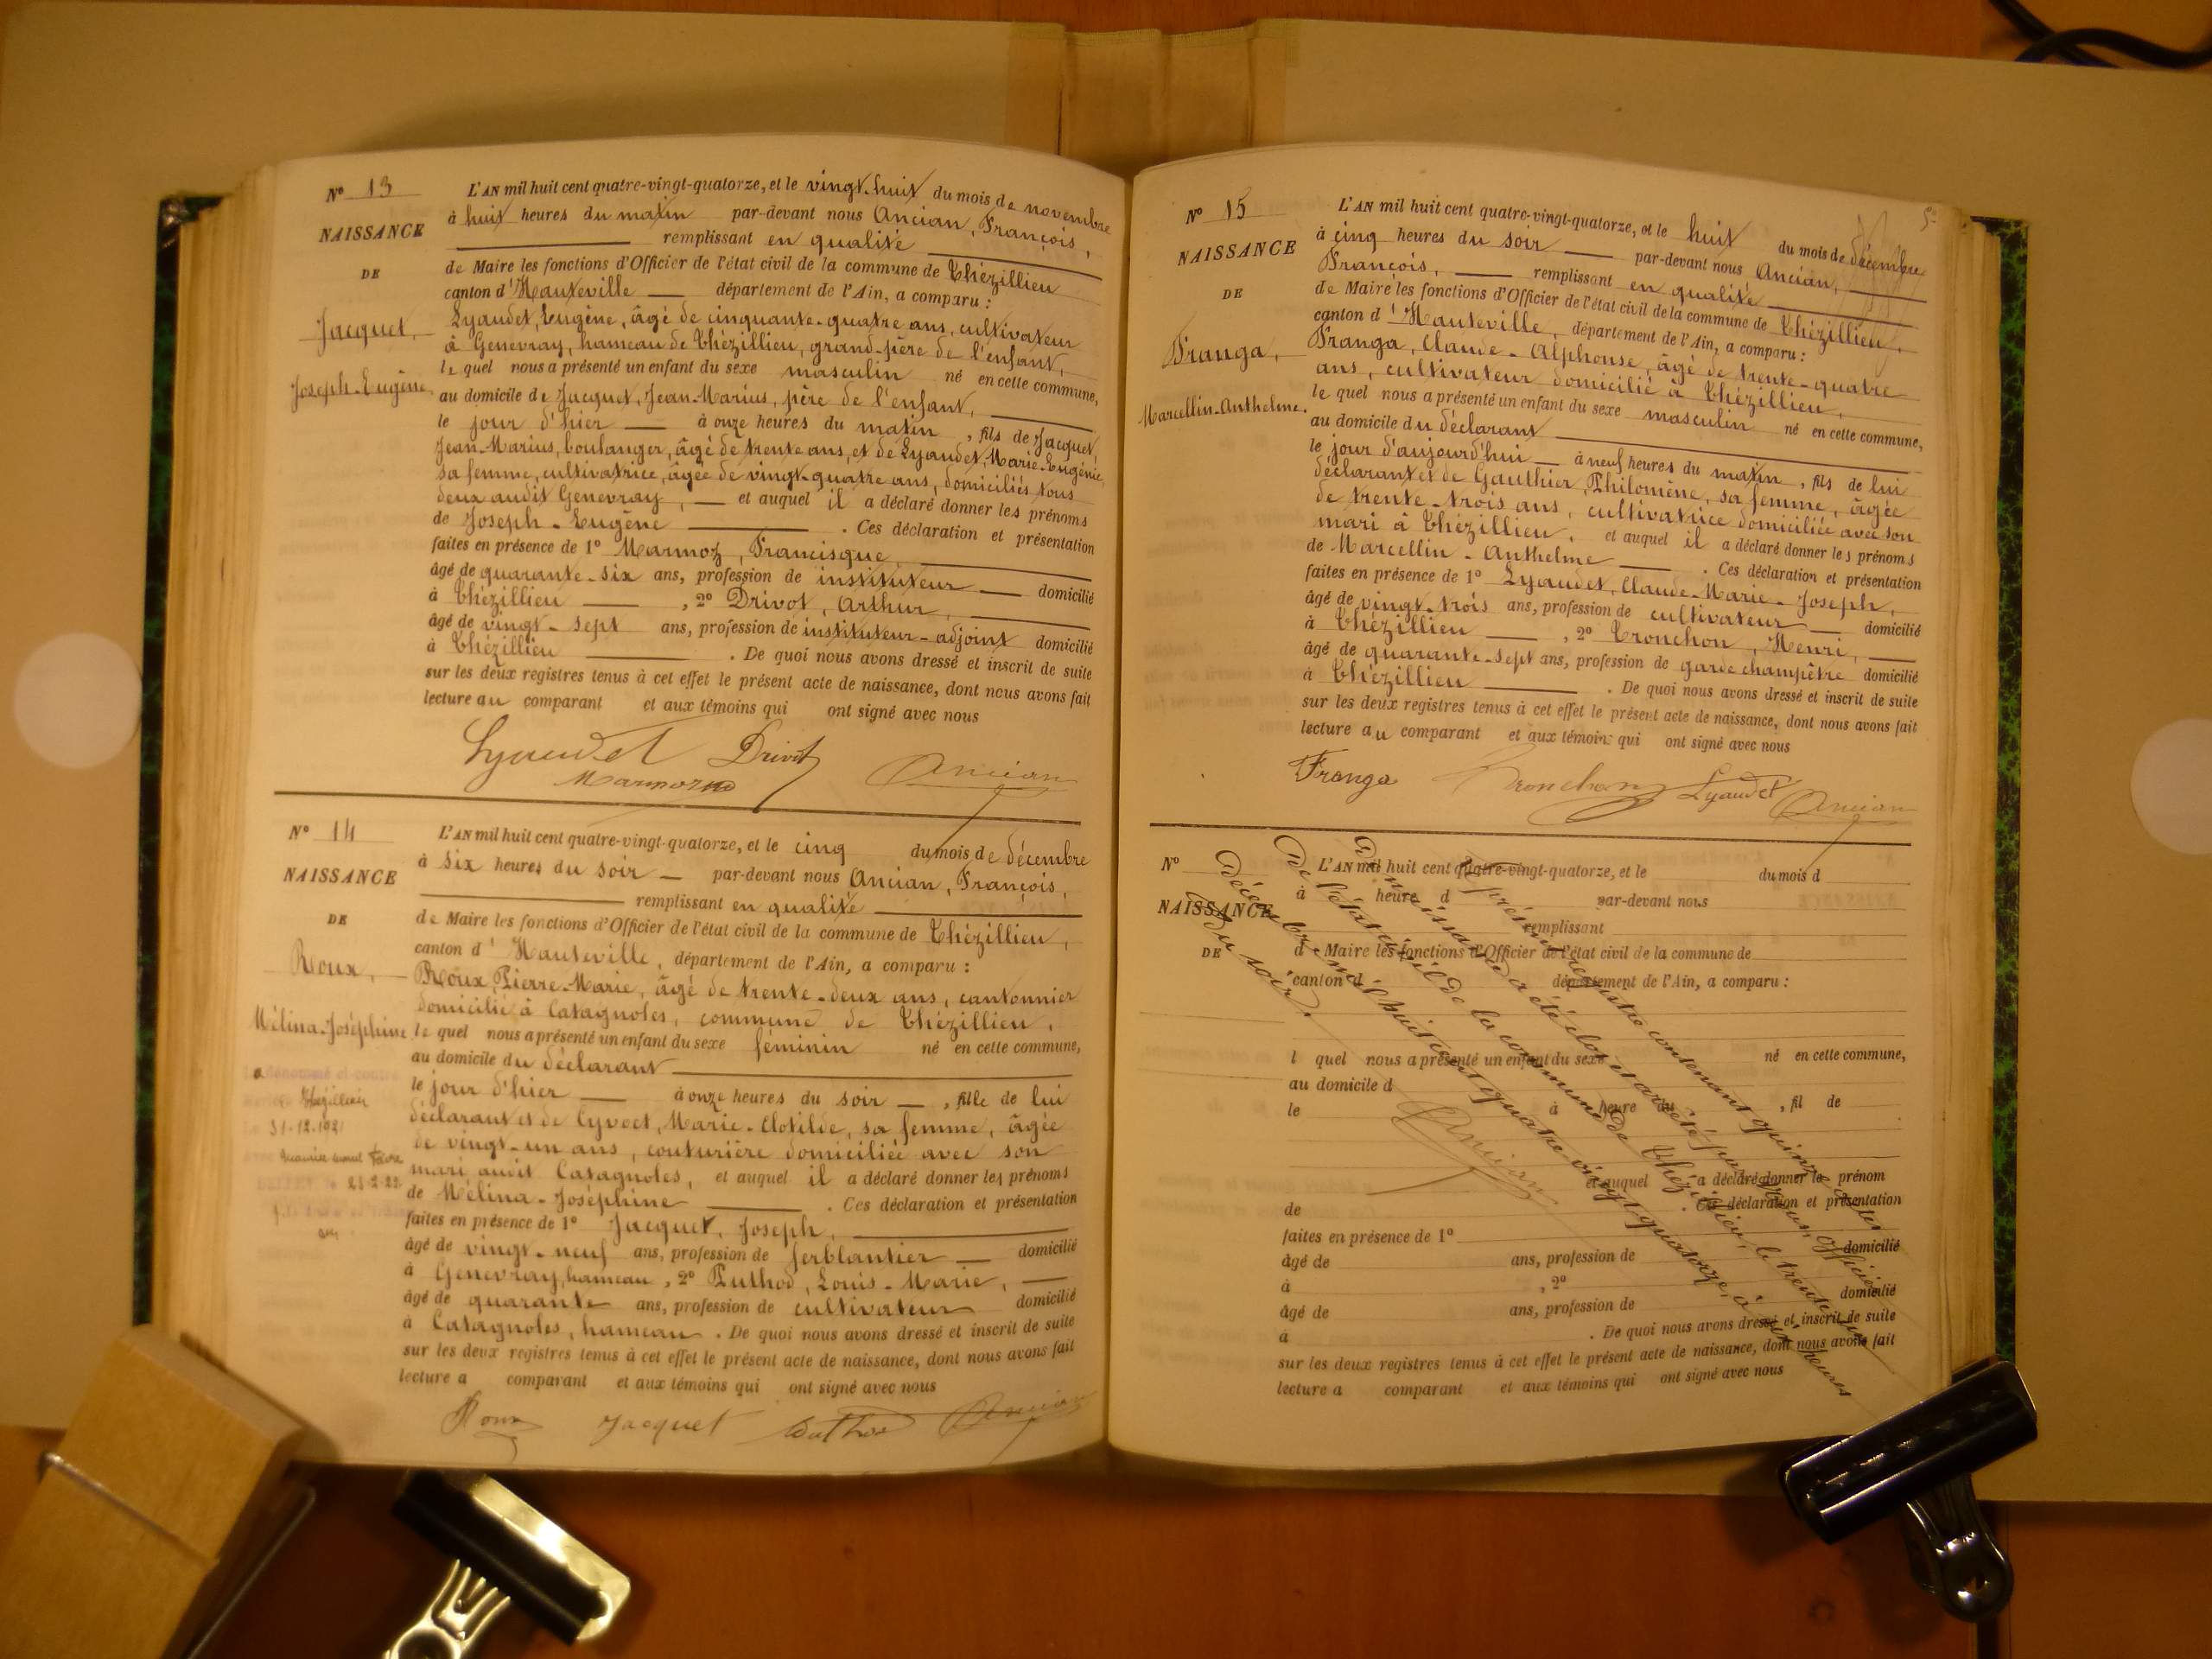 N° 13
NAISSANCE
DE
Jacquet,
Joseph-Eugène
L'AN mil huit cent quatre-vingt-quatorze, et le vingt-huit du mois de novembre
à huit heures du matin par-devant nous Ancian, François,
remplissant en qualité
de Maire les fonctions d'Officier de l'état civil de la commune de Thézillieu
canton d'Hauteville département de l'Ain, a comparu :
Lyaudet, Eugène, âgé de cinquante-quatre ans, cultivateur
à Genevray, hameau de Thézillieu, grand-père de l'enfant,
le quel nous a présenté un enfant du sexe masculin né en cette commune,
au domicile de Jacquet, Jean-Marius, père de l'enfant,
le jour d'hier à onze heures du matin, fils de Jacquet,
Jean-Marius, boulanger, âgé de trente ans, et de Lyaudet, Marie-Eugénie,
sa femme, cultivatrice, âgée de vingt-quatre ans, domiciliés tous
deux audit Genevray, et auquel il a déclaré donner les prénoms
de Joseph-Eugène. Ces déclaration et présentation
faites en présence de 1° Marmoz, Francisque
âgé de quarante-six ans, profession de instituteur domicilié
à Thézillieu, 2° Drivot, Arthur,
âgé de vingt-sept ans, profession de instituteur-adjoint domicilié
à Thézillieu. De quoi nous avons dressé et inscrit de suite
sur les deux registres tenus à cet effet le présent acte de naissance, dont nous avons fait
lecture au comparant et aux témoins qui ont signé avec nous
Lyaudet Drivot
Marmoz Ancian
N° 14
NAISSANCE
DE
Roux,
Mélina-Joséphine
Thézillieu
31-12-1921
L'AN mil huit cent quatre-vingt-quatorze, et le cinq du mois de décembre
à six heures du soir par-devant nous Ancian, François,
remplissant en qualité
de Maire les fonctions d'Officier de l'état civil de la commune de Thézillieu,
canton d'Hauteville, département de l'Ain, a comparu :
Roux, Pierre-Marie, âgé de trente-deux ans, cantonnier
domicilié à Catagnoles, commune de Thézillieu,
le quel nous a présenté un enfant du sexe féminin né en cette commune,
au domicile du déclarant
le jour d'hier à onze heures du soir, fille de lui
déclarant et de Cyvoct, Marie-Clotilde, sa femme, âgée
de vingt-un ans, couturière domiciliée avec son
mari audit Catagnoles, et auquel il a déclaré donner les prénoms
de Mélina-Joséphine. Ces déclaration et présentation
faites en présence de 1° Jacquet, Joseph,
âgé de vingt-neuf ans, profession de ferblantier domicilié
à Genevray, hameau, 2° Puthod, Louis-Marie,
âgé de quarante ans, profession de cultivateur domicilié
à Catagnoles, hameau. De quoi nous avons dressé et inscrit de suite
sur les deux registres tenus à cet effet le présent acte de naissance, dont nous avons fait
lecture a comparant et aux témoins qui ont signé avec nous
Roux Jacquet Puthod Ancian
N° 15
NAISSANCE
DE
Franga,
Marcellin-Anthelme.
L'AN mil huit cent quatre-vingt-quatorze, et le huit du mois de décembre
à cinq heures du soir par-devant nous Ancian,
François, remplissant en qualité
de Maire les fonctions d'Officier de l'état civil de la commune de Thézillieu,
canton d'Hauteville, département de l'Ain, a comparu :
Franga, Claude-Alphonse, âgé de trente-quatre
ans, cultivateur domicilié à Thézillieu,
le quel nous a présenté un enfant du sexe masculin né en cette commune,
au domicile du déclarant
le jour d'aujourd'hui à neuf heures du matin, fils de lui
déclarant et de Gauthier, Philomène, sa femme, âgée
de trente-trois ans, cultivatrice domiciliée avec son
mari à Thézillieu, et auquel il a déclaré donner les prénoms
de Marcellin-Anthelme. Ces déclaration et présentation
faites en présence de 1° Lyaudet, Claude-Marie-Joseph,
âgé de vingt-trois ans, profession de cultivateur domicilié
à Thézillieu, 2° Tronchon, Henri,
âgé de quarante-sept ans, profession de garde champêtre domicilié
à Thézillieu. De quoi nous avons dressé et inscrit de suite
sur les deux registres tenus à cet effet le présent acte de naissance, dont nous avons fait
lecture au comparant et aux témoins qui ont signé avec nous
Franga Tronchon Lyaudet Ancian
N°
NAISSANCE
DE
L'AN mil huit cent quatre-vingt-quatorze, et le du mois d
à heure d par-devant nous
remplissant
d Maire les fonctions d'Officier de l'état civil de la commune de
canton d département de l'Ain, a comparu :
l quel nous a présenté un enfant du sexe né en cette commune,
au domicile d
le à heure d, fil de
et auquel a déclaré donner le prénom
de. Ces déclaration et présentation
faites en présence de 1°
âgé de ans, profession de domicilié
à, 2°
âgé de ans, profession de domicilié
à. De quoi nous avons dressé et inscrit de suite
sur les deux registres tenus à cet effet le présent acte de naissance, dont nous avons fait
lecture a comparant et aux témoins qui ont signé avec nous
Le présent registre contenant quinze actes
de naissance a été clos et arrêté par Nous, Officier
de l'état civil de la commune de Thézillieu, le trente-un
Décembre mil huit cent quatre vingt quatorze, à six heures
du soir.
Ancian